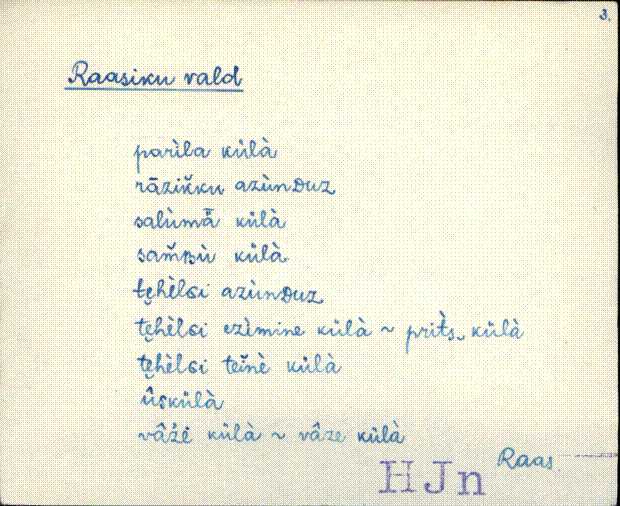 3.
Raasiku vald
parìla külà
rāzik̆ku azùnᴅuz
salùmā̈ külà
sam̆ʙù külà
te̮hèlɢi azùnᴅuz
te̮hèlɢi ezìmine külà ~ prit̀s‿külà
te̮hèlɢi teĭnè külà
û̈skülà
vâžè külà ~ vâze külà
Raas
HJn